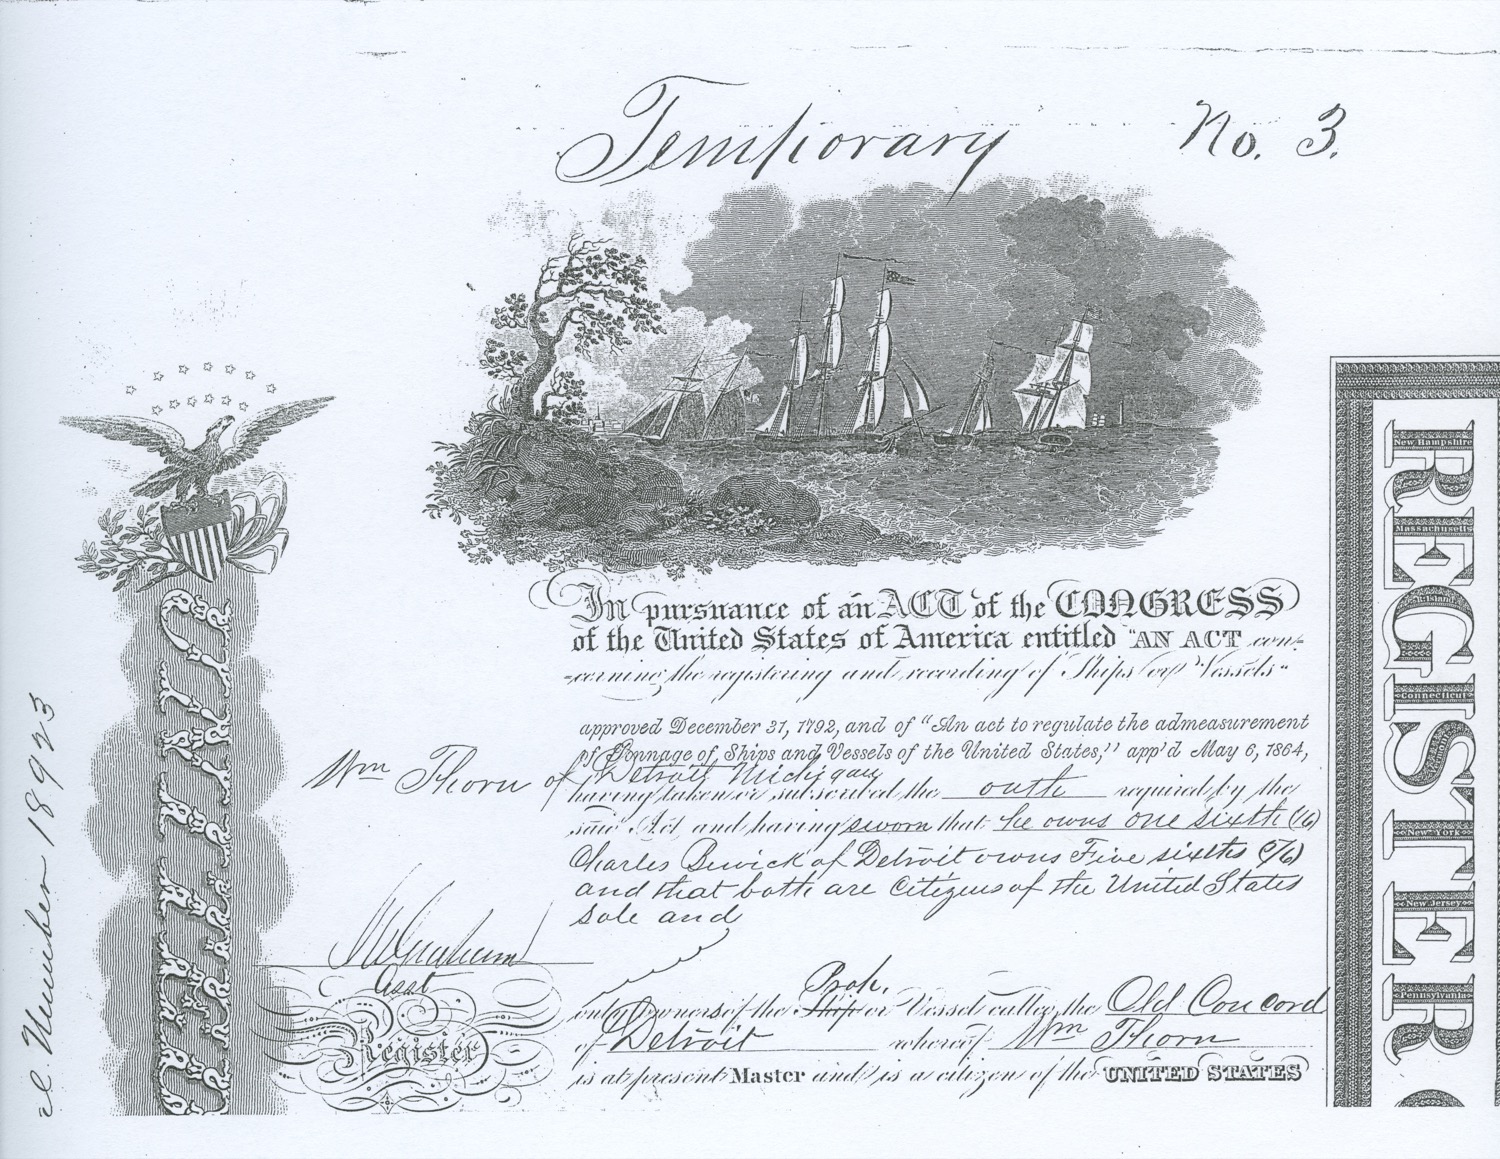 Temporary No. 3.
In pursuance of an ACT of the CONGRESS
of the United States of America entitled "AN ACT con-
cerning the registering and recording of Ships or Vessels"
approved December 31, 1792, and of "An act to regulate the admeasurement
of Tonnage of Ships and Vessels of the United States," app'd May 6, 1864,
Wm Thorn of Detroit Michigan
having taken or subscribed the oath required by the
said Act and having sworn that he owns one sixth (1/6)
Charles Bewick of Detroit owns Five sixths (5/6)
and that both are Citizens of the United States
sole and
only owners of the Ship or Vessel called the Old Concord
Prop.
of Detroit whereof Wm Thorn
is at present Master and is a citizen of the UNITED STATES
Asst
Register
Number 18923
REGISTER
New Hampshire
Massachusetts
R. Island
Connecticut
New York
New Jersey
Pennsylvania